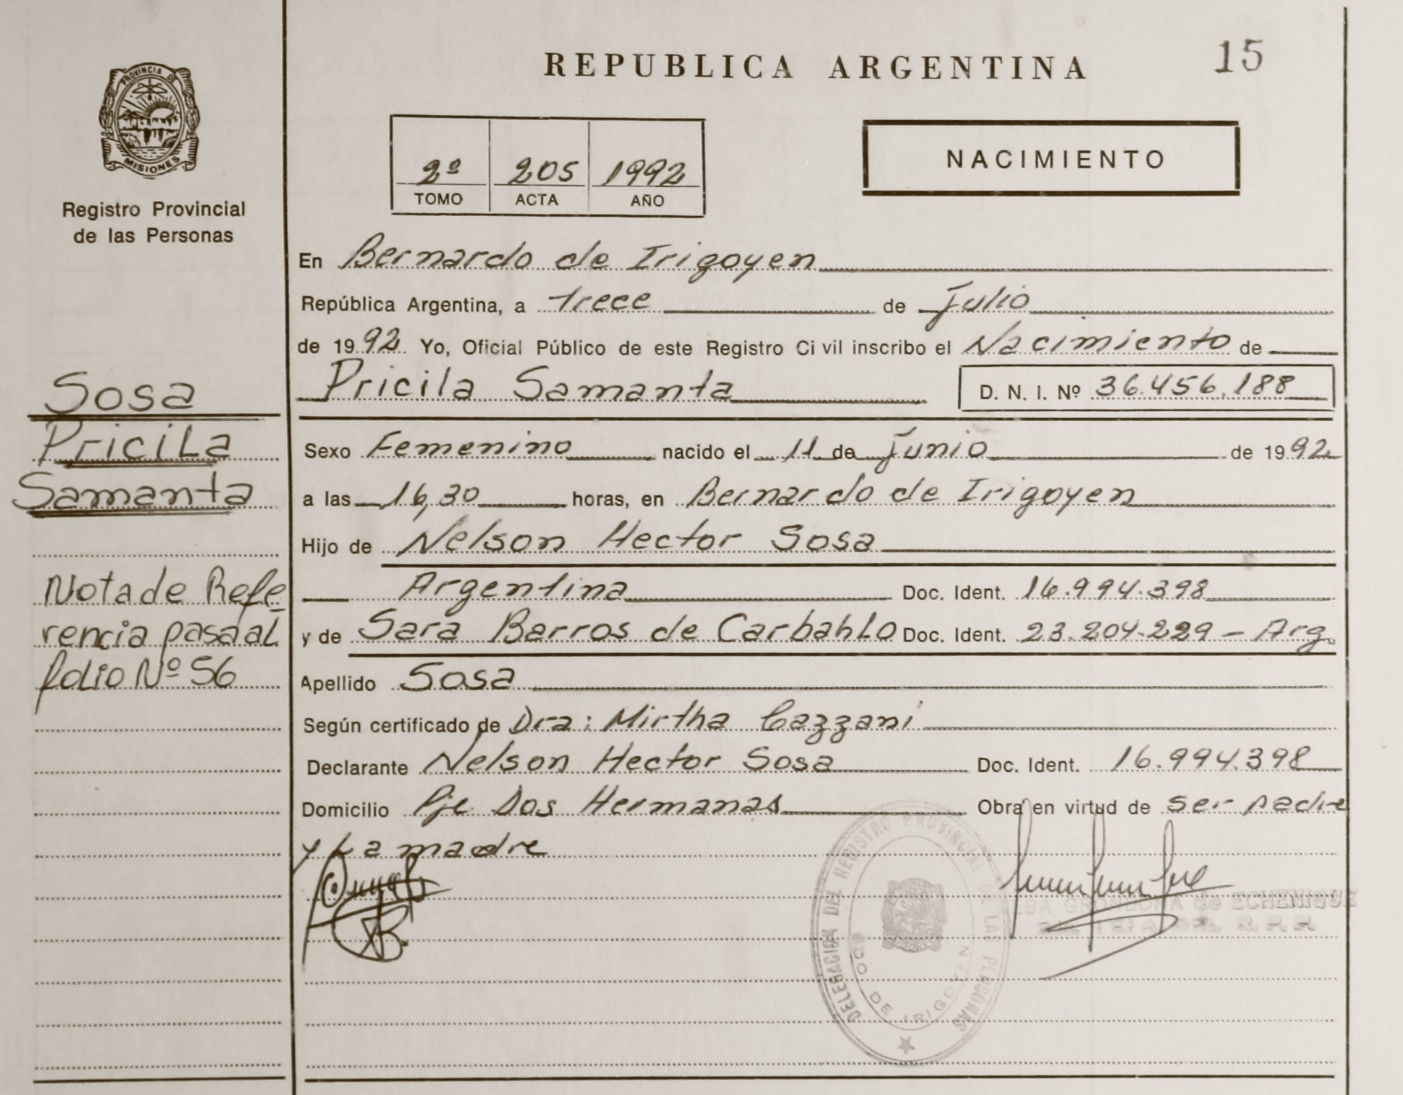 REPUBLICA ARGENTINA
15
PROVINCIA DE
MISIONES
Registro Provincial
de las Personas
2º 205 1992
TOMO ACTA AÑO
NACIMIENTO
En Bernardo de Irigoyen
República Argentina, a trece de Julio
de 1992. Yo, Oficial Público de este Registro Civil inscribo el Nacimiento de
Pricila Samanta D. N. I. Nº 36.456.188
Sexo Femenino nacido el 11 de Junio de 1992
a las 16,30 horas, en Bernardo de Irigoyen
Hijo de Nelson Hector Sosa
Argentina Doc. Ident. 16.994.398
y de Sara Barros de Carbahlo Doc. Ident. 23.204.229 - Arg.
Apellido Sosa
Según certificado de Dra: Mirtha Cazzani
Declarante Nelson Hector Sosa Doc. Ident. 16.994.398
Domicilio Pje Dos Hermanas Obra en virtud de ser padre
y La madre
Sosa
Pricila
Samanta
Nota de Refe-
rencia pasa al
folio Nº 56
DELEGACION DEL REGISTRO PROVINCIAL DE LAS PERSONAS
DO DE IRIGOYEN
de ECHENIGUE